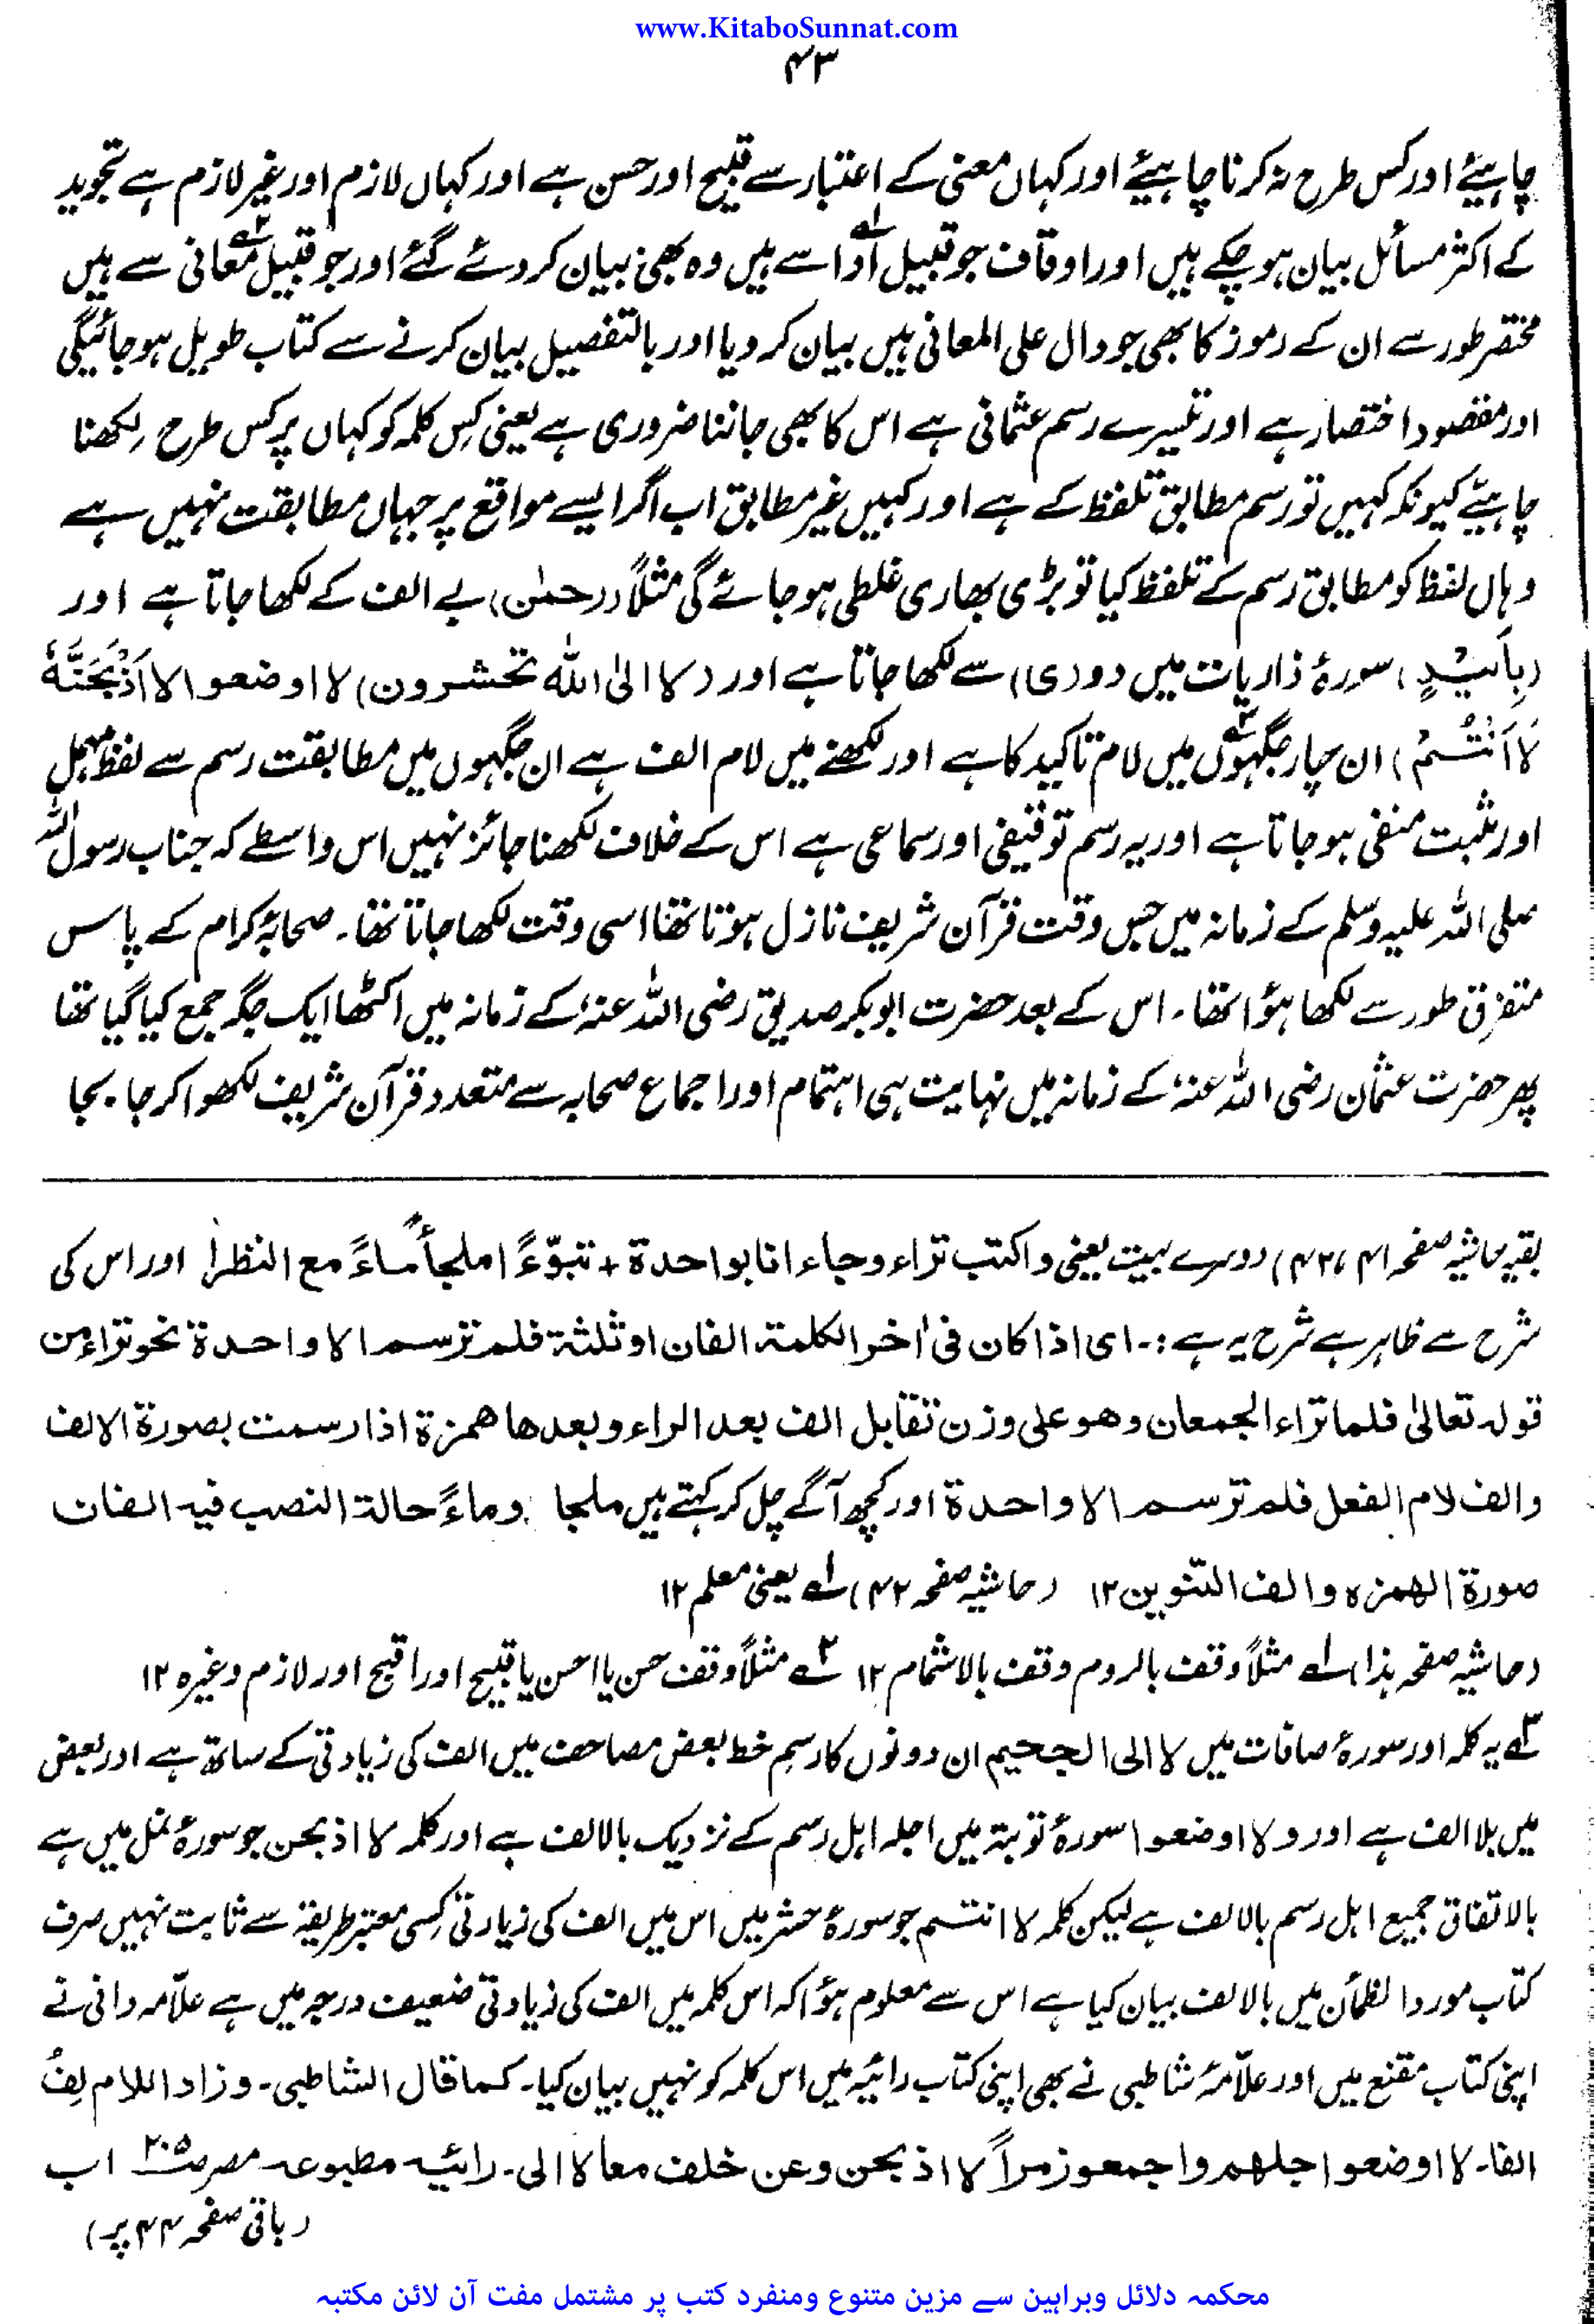 www.KitaboSunnat.com
۴۳
چاہیئے اور کس طرح نہ کرنا چاہیئے اور کہاں معنی کے اعتبار سے قبیح اور حسن ہے اور کہاں لازم اور غیر لازم ہے تجوید
کے اکثر مسائل بیان ہو چکے ہیں اور اوقاف جو قبیل اَدا۱ؔ سے ہیں وہ بھی بیان کر دئے گئے اور جو قبیل معانی۲ؔ سے ہیں
مختصر طور سے ان کے رموز کا بھی جو دال علی المعانی ہیں بیان کر دیا اور بالتفصیل بیان کرنے سے کتاب طویل ہو جائیگی
اور مقصود اختصار ہے اور تیسرے رسم عثمانی ہے اس کا بھی جاننا ضروری ہے یعنی کِس کلمہ کو کہاں پر کس طرح لِکھنا
چاہیئے کیونکہ کہیں تو رسم مطابق تلفظ کے ہے اور کہیں غیر مطابق اب اگر ایسے مواقع پر جہاں مطابقت نہیں ہے
وہاں لفظ کو مطابق رسم کے تلفظ کیا تو بڑی بھاری غلطی ہو جائے گی مثلاً (رحمٰن) بے الف کے لکھا جاتا ہے اور
(بِاَییْدٍ) سورۂ ذاریات میں دو (ی) سے لکھا جاتا ہے اور (لا الیٰ اللّٰہ تحشرون) لا اوضعوا لا اَذْبَحَنَّهٗ
لَا اَنْتُمْ) ان چار جگہوں۳ؔ میں لام تاکید کا ہے اور لکھنے میں لام الف ہے ان جگہوں میں مطابقت رسم سے لفظ مہمل
اور مثبت منفی ہو جاتا ہے اور یہ رسم توقیفی اور سماعی ہے اس کے خلاف لکھنا جائز نہیں اس واسطے کہ جناب رسول اللہ
صلی اللہ علیہ وسلم کے زمانہ میں جس وقت قرآن شریف نازل ہوتا تھا اسی وقت لکھا جاتا تھا۔ صحابۂ کرام کے پاس
متفرق طور سے لکھا ہؤا تھا۔ اس کے بعد حضرت ابوبکر صدیق رضی اللہ عنہٗ کے زمانہ میں اکٹھا ایک جگہ جمع کیا گیا تھا
پھر حضرت عثمان رضی اللہ عنہٗ کے زمانہ میں نہایت ہی اہتمام اور اجماع صحابہ سے متعدد قرآن شریف لکھوا کر جا بجا
بقیہ حاشیہ صفحہ ۴۱، ۴۲) دوسرے بیت یعنی واکتب تراء وجاء انا بواحدۃ + تبوّءًا ملجأً ماءً مع النظرا اور اس کی
شرح سے ظاہر ہے شرح یہ ہے :۔ ای اذا کان فی اٰخر الکلمۃ الفان او ثلثۃ فلم ترسم الا واحدۃ نحو تراء من
قولہ تعالیٰ فلما تراء الجمعان وھو علی وزن تقابل الف بعد الراء وبعدھا ھمزۃ اذا رسمت بصورۃ الالف
والف لام الفعل فلم ترسم الا واحدۃ اور کچھ آگے چل کر کہتے ہیں ملجا وماءً حالۃ النصب فیہ الفان
صورۃ الھمزہ والف التنوین ۱۲ (حاشیہ صفحہ ۴۲) ۱ؔ یعنی معلم ۱۲
(حاشیہ صفحہ ہذا) ۱ؔ مثلاً وقف بالروم وقف بالاشمام ۱۲ ۲ؔ مثلاً وقف حسن یا احسن یا قبیح اور اقبح اور لازم وغیرہ ۱۲
۳ؔ یہ کلمہ اور سورۂ صافات میں لا الی الجحیم ان دونوں کا رسمِ خط بعض مصاحف میں الف کی زیادتی کے ساتھ ہے اور بعض
میں بلا الف ہے اور ولا اوضعوا سورۂ توبۃ میں اجلہ اہل رسم کے نزدیک بالالف ہے اور کلمہ لا اذبحن جو سورۂ نمل میں ہے
بالاتفاق جمیع اہل رسم بالالف ہے لیکن کلمہ لا انتم جو سورۂ حشر میں اس میں الف کی زیادتی کِسی معتبر طریقہ سے ثابت نہیں صرف
کتاب مورد الظمآن میں بالالف بیان کیا ہے اس سے معلوم ہؤا کہ اس کلمہ میں الف کی زیادتی ضعیف درجہ میں ہے علّامہ دانی نے
اپنی کتاب مقنع میں اور علّامۂ شاطبی نے بھی اپنی کتاب رائیّہ میں اس کلمہ کو نہیں بیان کیا۔ کما قال الشاطبی۔ وزاد اللام لِفُ
الفا۔ لا اوضعوا جلھم واجمعوا زمراً لا اذبحن وعن خلف معا لا الی۔ رائیہ مطبوعہ مصر صـ۲۰۵ اب
(باقی صفحہ ۴۴ پر)
محکمہ دلائل وبراہین سے مزین متنوع ومنفرد کتب پر مشتمل مفت آن لائن مکتبہ